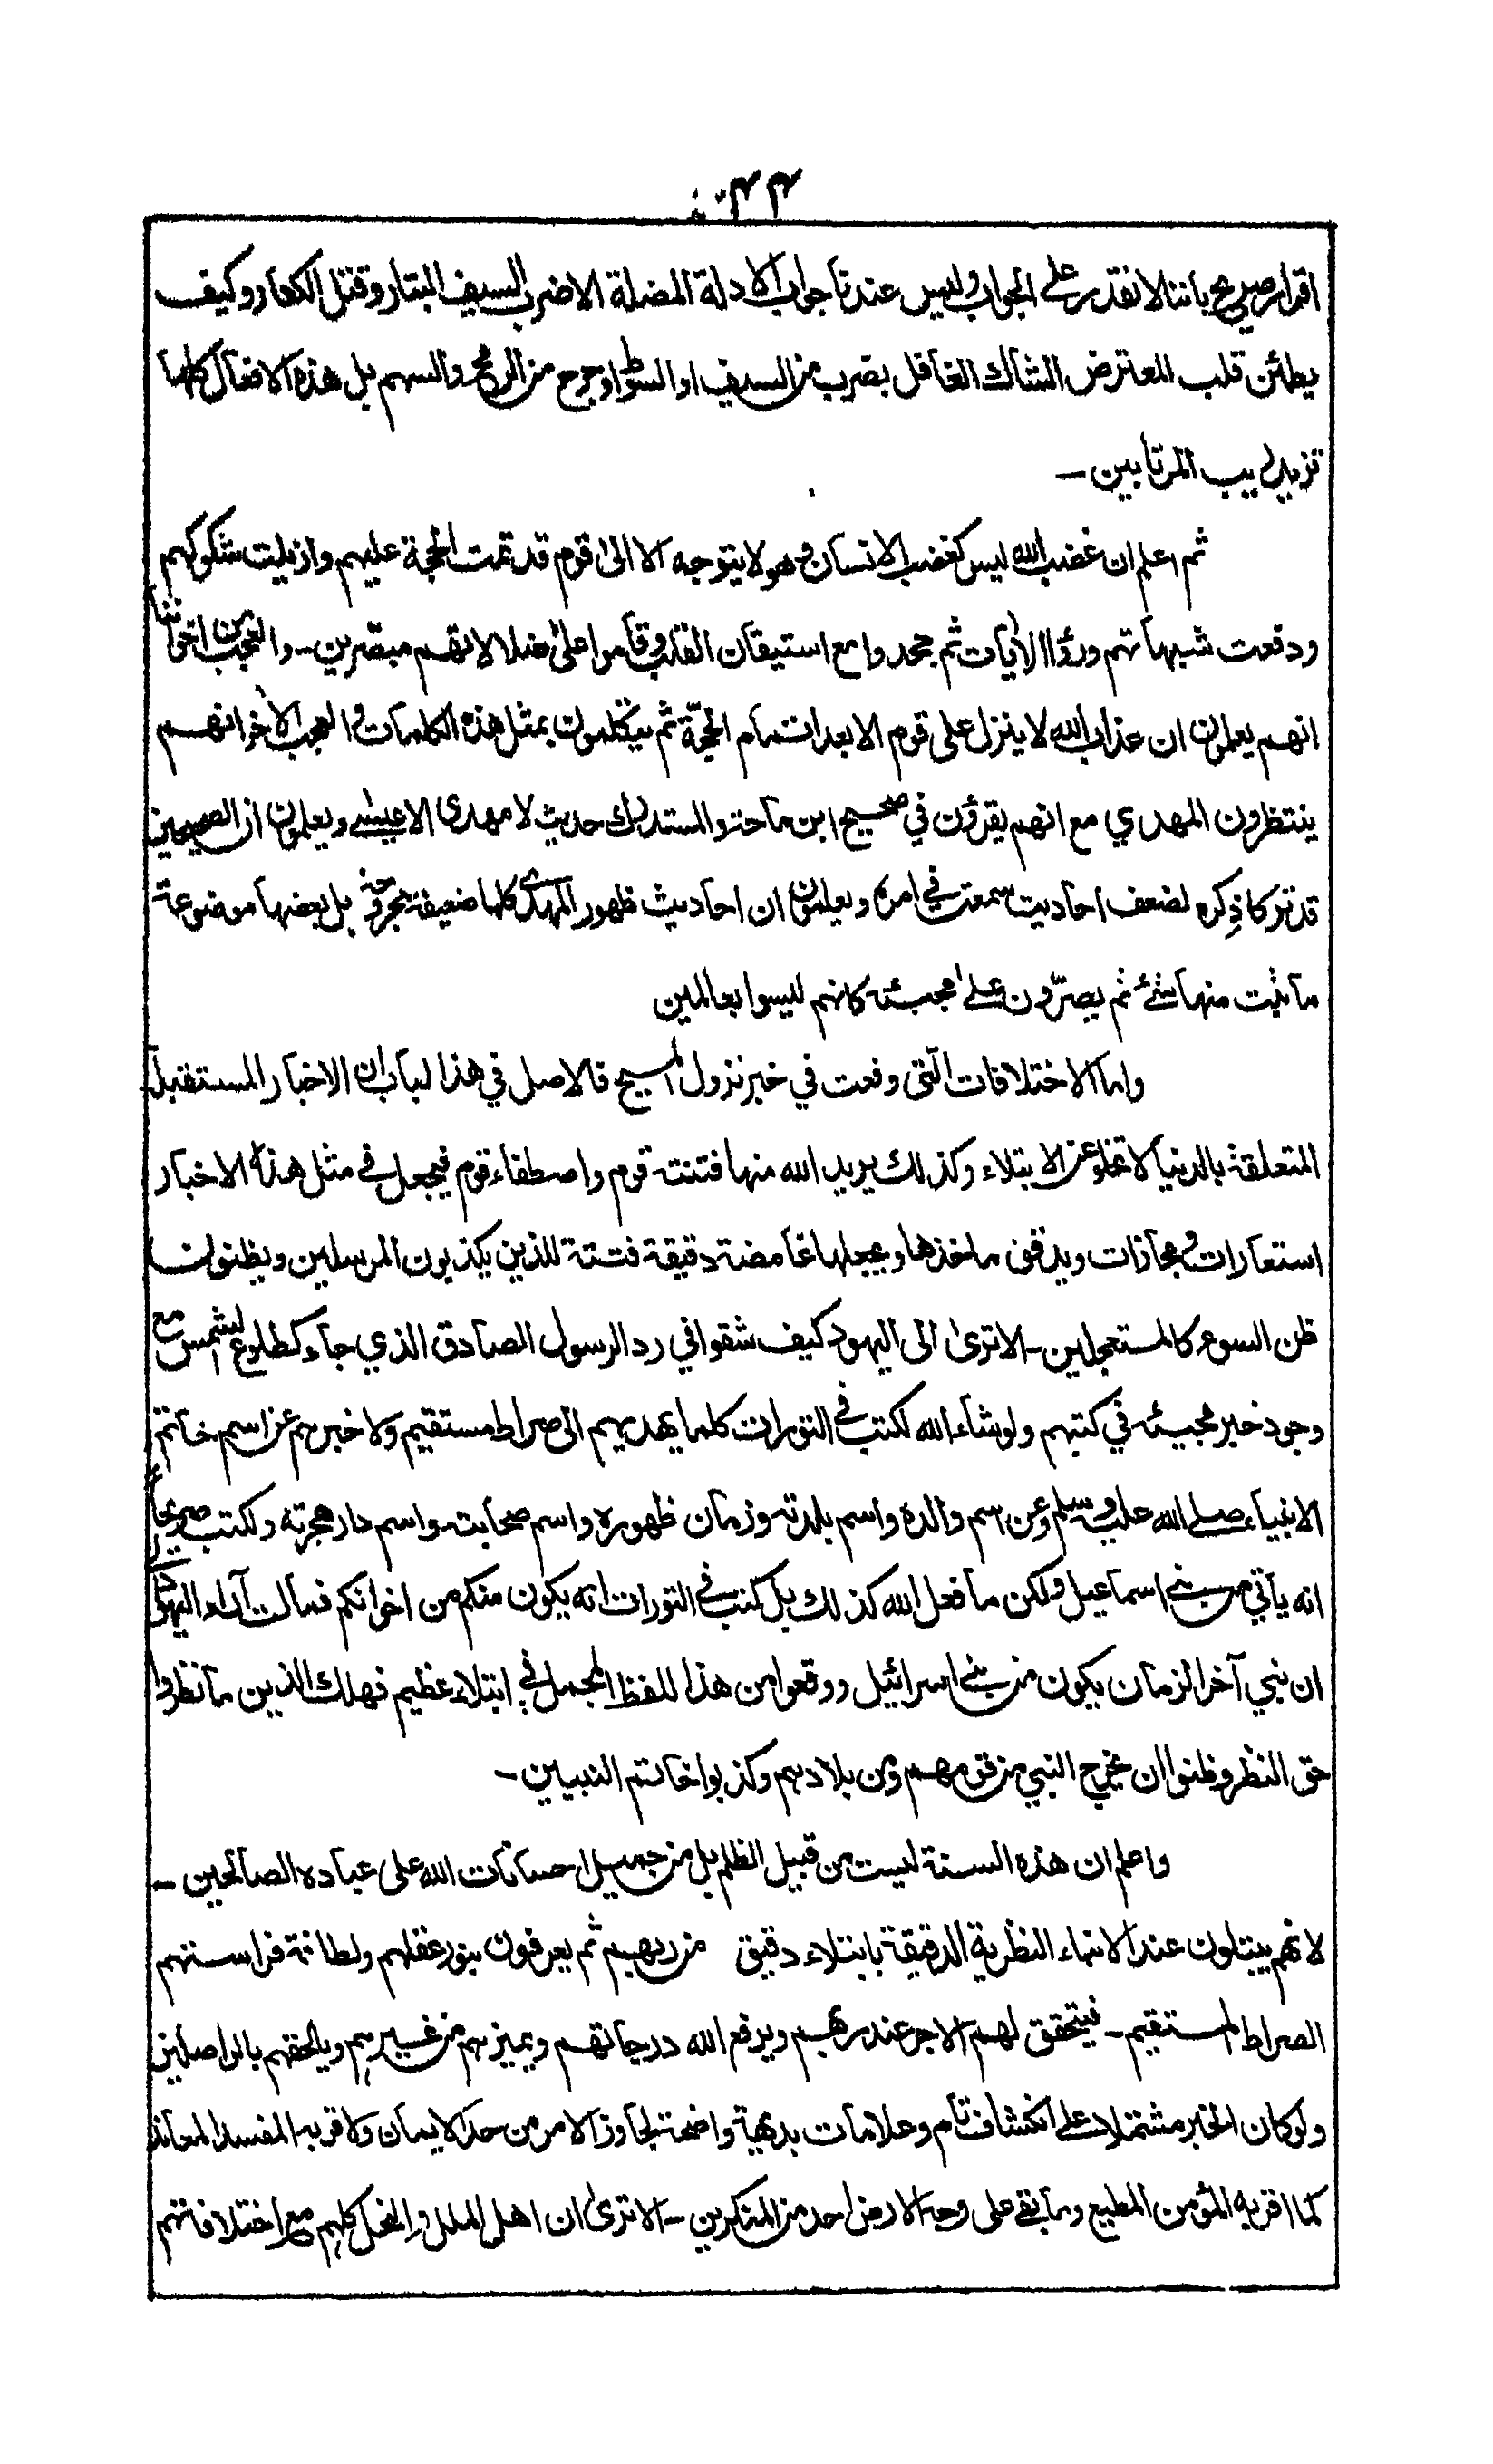 اقرار صريح باننا لا نقدر على الجواب وليس عندنا جواب الادلة المضلة الا ضرب السيف البتار وقتل الكفار وكيف
يطمئن قلب المعترض الشاك الغافل بضرب من السيف او السوط او جرح من الرمح والسهم بل هذه الافعال كلها
تزيد ريب المرتابين -
ثم اعلم ان غضب الله ليس كغضب الانسان وهو لا يتوجه الا الى قوم قد تمت الحجة عليهم وازيلت شكوكهم
ودفعت شبهاتهم ورؤا الاٰيات ثم جحدوا مع استيقان القلب وقاموا علىٰ ضلالاتهم مبصّرين - والعجب من اخواننا
انهم يعلمون ان عذاب الله لا ينزل على قوم الا بعد اتمام الحجّة ثم يتكلمون بمثل هذه الكلمات والعجب الاٰخر انهم
ينتظرون المهدي مع انهم يقرؤن في صحيح ابن ماجة والمستدرك حديث لا مهدى الا عيسٰى ويعلمون ان الصحيحين
قد تركا ذِكره لضعف احاديث سمعت في امره ويعلمون ان احاديث ظهور المهدى كلها ضعيفة مجروحة بل بعضها موضوعة
ما ثبت منها شئ ثم يصرّون علىٰ مجيئه كانهم ليسوا بعالمين
واما الاختلافات الّتى وقعت في خبر نزول المسيح فالاصل في هذا الباب ان الاخبار المستقبلة
المتعلقة بالدنيا لا تخلو عن الابتلاء وكذلك يريد الله منها فتنة قوم واصطفاء قوم فيجعل في مثل هذه الاخبار
استعارات ومجازات ويدقق ماخذها ويجعلها غامضة دقيقة فتنة للذين يكذبون المرسلين ويظنون
ظن السوء كالمستعجلين - الا ترىٰ الى اليهود كيف شقوا في رد الرسول الصادق الذي جاء كطلوع الشمس مع
وجود خبر مجيئه في كتبهم ولو شاء الله لكتب في التورات كلما يهديهم الى صراط مستقيم ولاخبرهم عن اسم خاتم
الانبياء صلى الله عليه وسلم وعن اسم والده واسم بلدته وزمان ظهوره واسم صحابته واسم دار هجرته ولكتب صريحاً
انه يأتي من بنى اسماعيل ولكن ما فعل الله كذلك بل كتب في التورات انه يكون منكم من اخوانكم فمالت آراء اليهود الى
ان نبي آخر الزمان يكون من بنى اسرائيل ووقعوا من هذا اللفظ المجمل في ابتلاء عظيم فهلك الذين ما نظروا
حق النظر وظنوا ان يخرج النبي من قومهم ومن بلادهم وكذبوا خاتم النبيين -
واعلم ان هذه السنة ليست من قبيل الظلم بل من جميل احسانات الله على عباده الصالحين -
لانهم يبتلون عند الانباء النظرية الدقيقة بابتلاء دقيق من ربهم ثم يعرفون بنور عقلهم ولطافة فراستهم
الصراط المستقيم - فيتحقق لهم الاجر عند ربهم ويرفع الله درجاتهم ويميزهم من غيرهم ويلحقهم بالواصلين
ولو كان الخبر مشتملا على انكشاف تام وعلامات بديهة واضحة لجاوز الامر من حد الايمان ولاقر به المفسد المعاند
كما اقر به المؤمن المطيع وما بقى على وجه الارض احد من المنكرين - الا ترىٰ ان اهل الملل والنحل كلهم مع اختلافاتهم